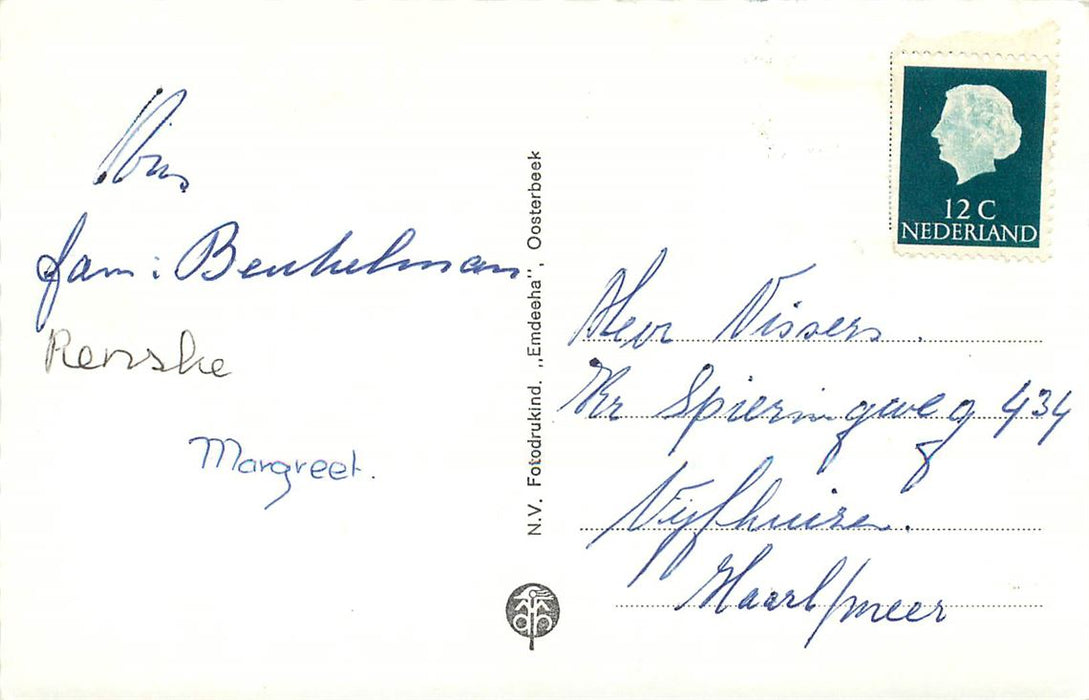 fam: Beukelman
Renske
Margreet.
N.V. Fotodrukind. „Emdeeha", Oosterbeek
12 C
NEDERLAND
Heer Vissers.
Kr Spieringweg 434
Vijfhuizen.
Haarl/meer